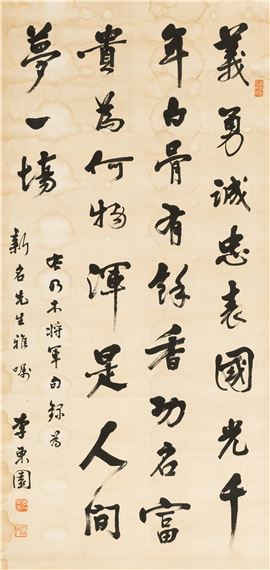 義勇誠忠表國光千
年白骨有餘香功名富
貴為何物渾是人间
夢一場
乃木將軍句錄為
新名先生雅嘱
李東園